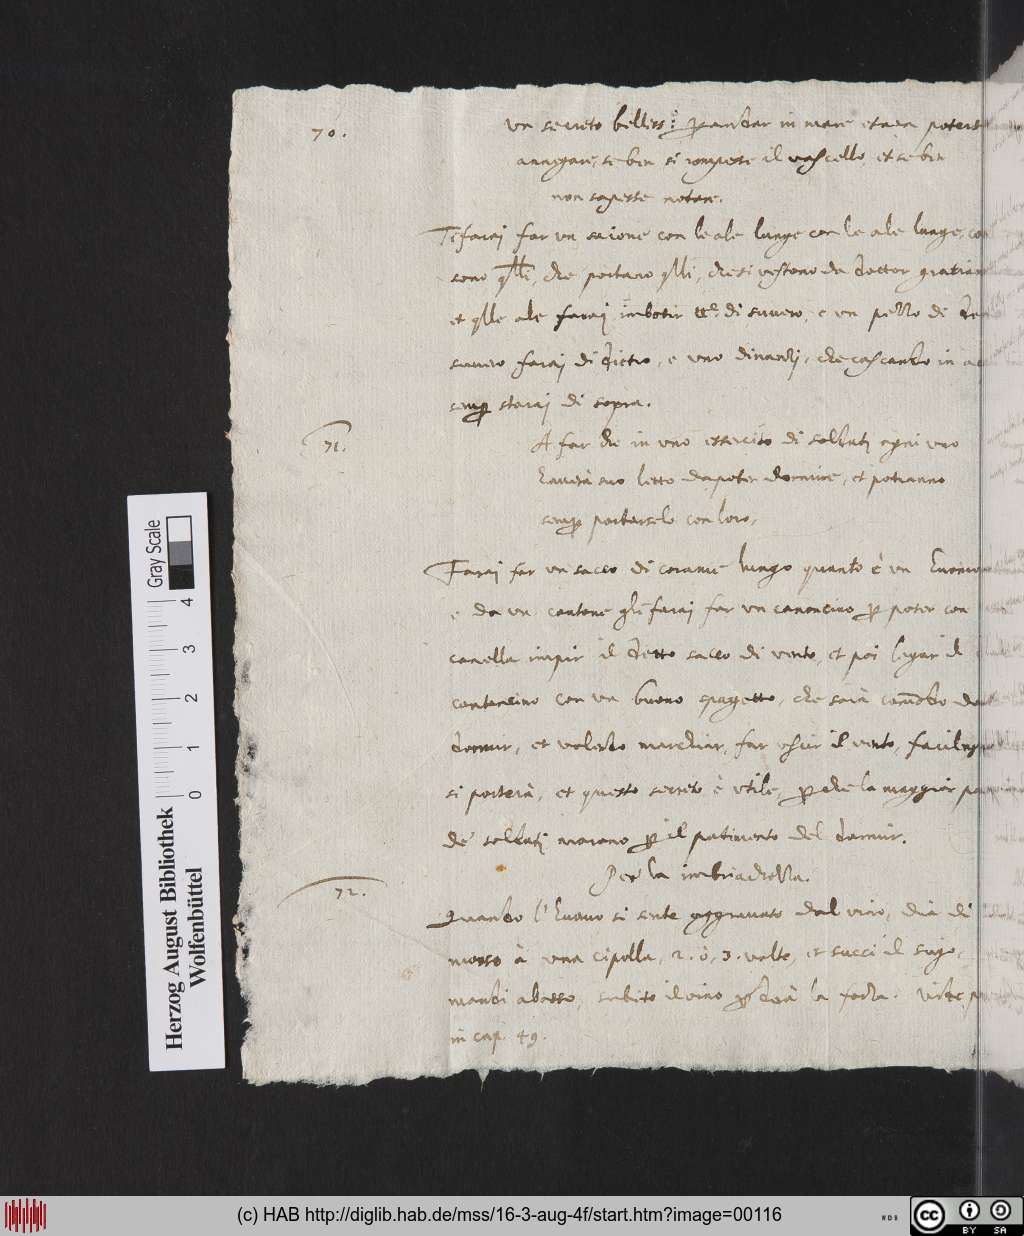 70.
Un secreto belliss:º per andar in mare et non poters
annegare, se ben si rompesse il vascello, et se ben
non sapesse notare.
Ti farai far un saione con le ale lunge con le ale lunge, co
sono qlli, che portano qlli, che si vestono da dottor gratian
et qlle ale farai imbotir di suvero, e un pezzo di
suvero farai di dietro, e uno dinanzi, che cascando in
semp starai di sopra.
71.
A far che in uno essercito di soldati ogni uno
haverà suo letto da poter dormire, et potranno
semp portarselo con loro.
Farai far un sacco di corame lungo quanto è un huomo
e da un cantone gli farai far un canoncino p poter con
canella impir il detto sacco di vento, et poi legar il
con un buono spagetto, che sarà comodo da
dormir, et volendo marchiar, far uscir il vento,
si porterà, et questo secreto è utile, p che la maggior
de soldati morano p il patimento del dormir.
72.
Per la imbriachezza.
Quando l'huomo si sente aggravato dal vino, dia di
morso à una cipolla, 2. ò, 3. volte, et succi il sugo,
mandi abasso, subito il vino perderà la forza. Vide
in cap. 49.
Herzog August Bibliothek
Wolfenbüttel
Gray Scale
0 1 2 3 4
(c) HAB http://diglib.hab.de/mss/16-3-aug-4f/start.htm?image=00116
WDB
cc BY SA